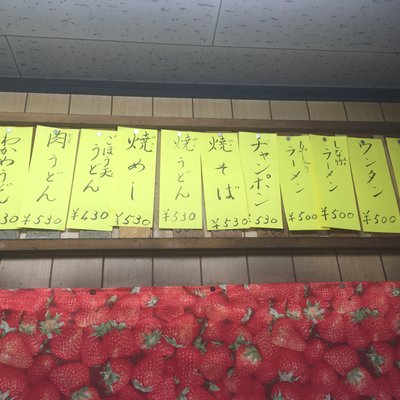 わかめうどん
30
肉うどん
¥530
ごぼう天
うどん
¥430
焼めし
¥530
焼うどん
¥530
焼そば
¥530
チャンポン
¥530
ラーメン
¥500
しな竹
ラーメン
¥500
ワンタン
¥500